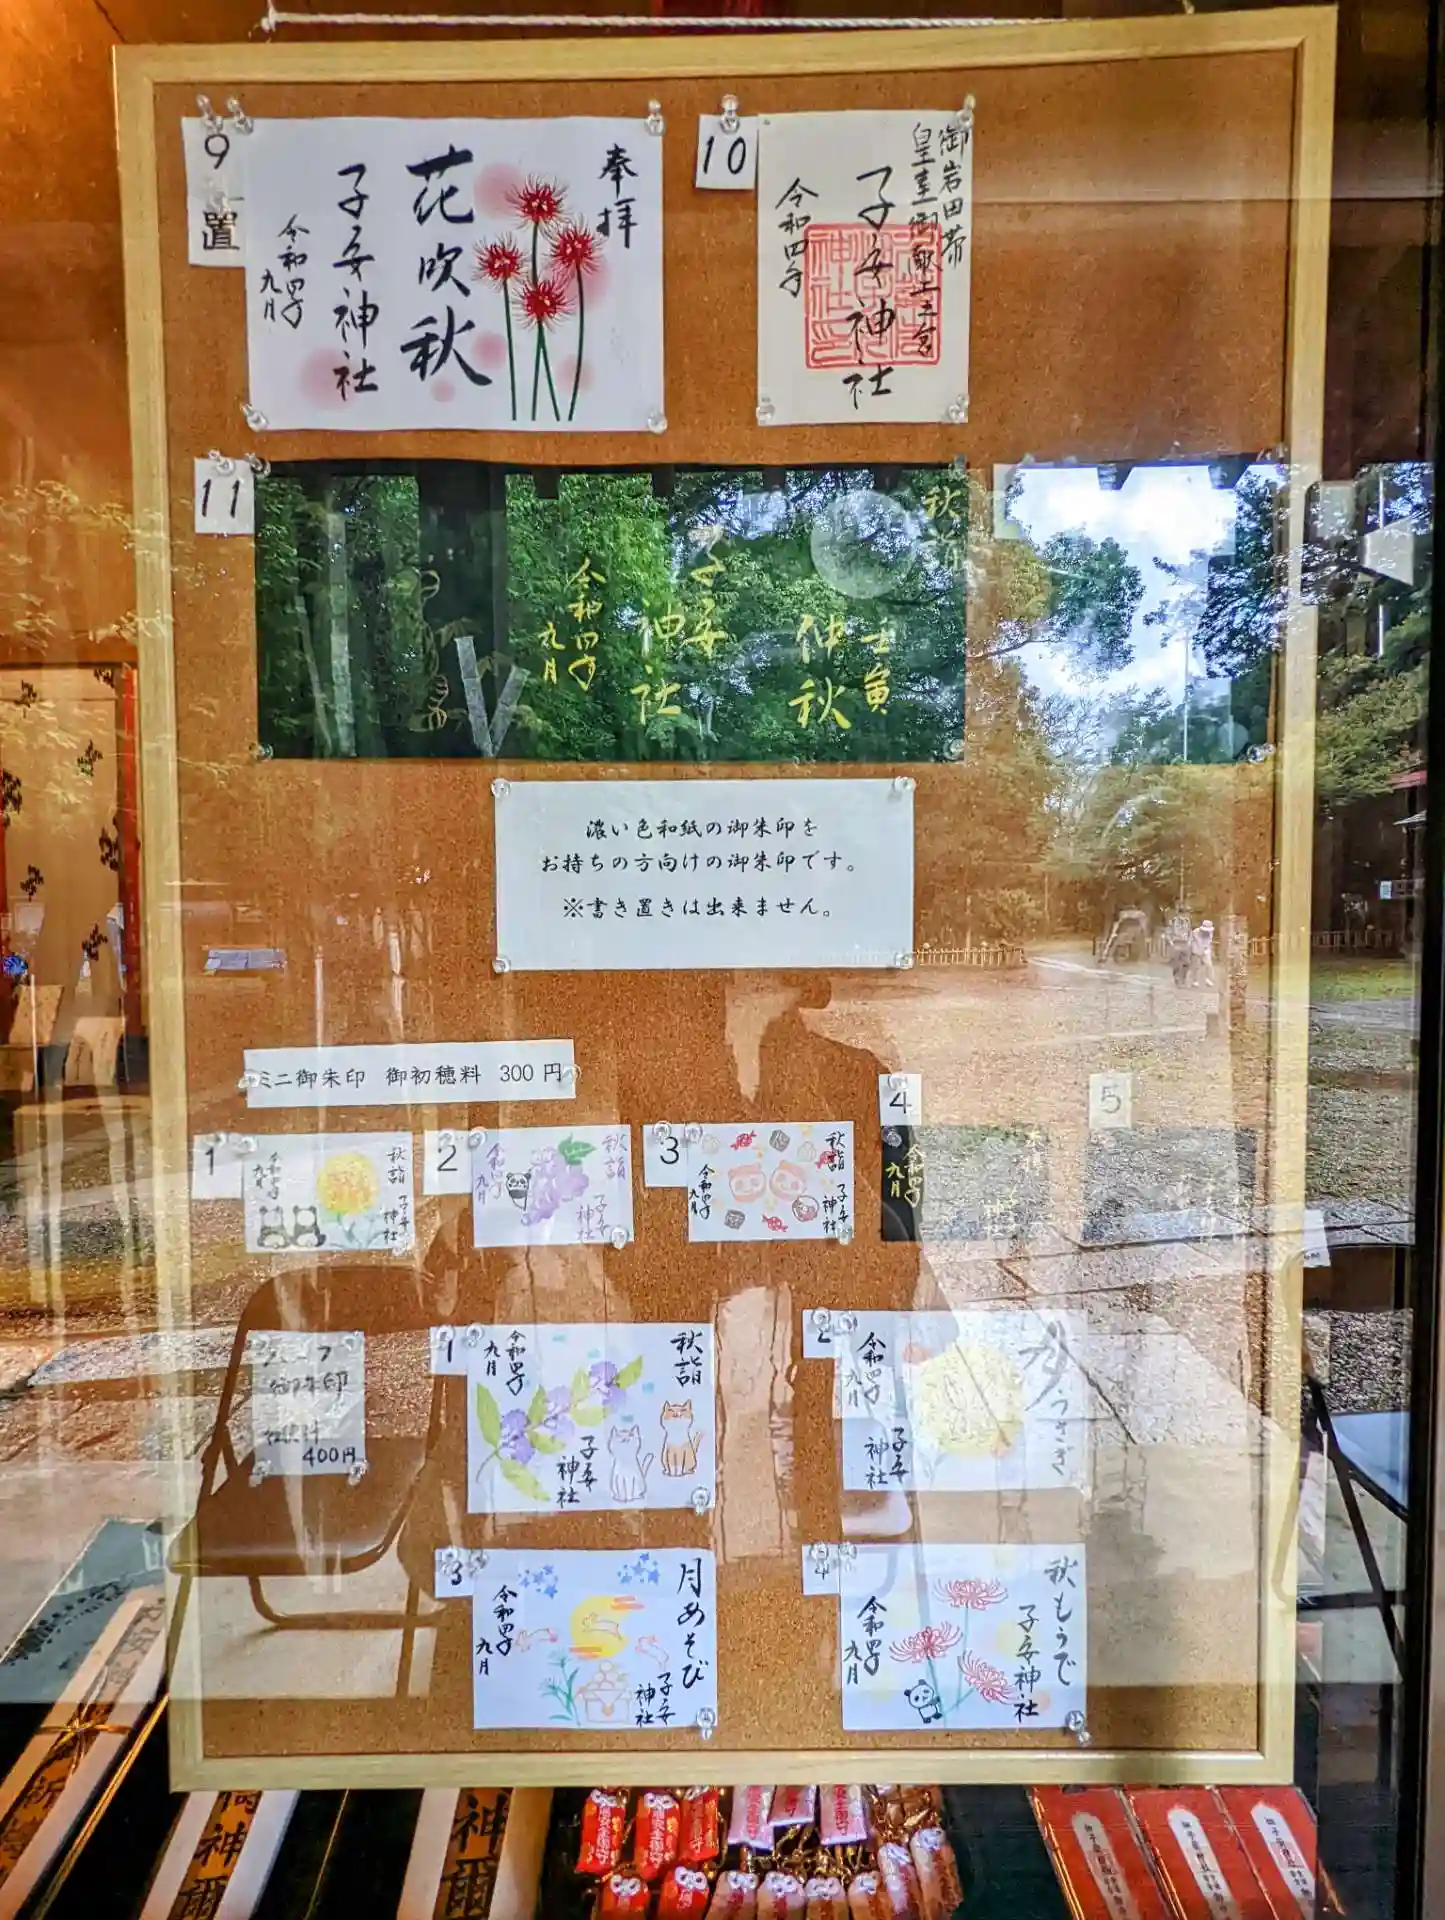 9
置
奉拝
花吹秋
子安神社
令和四年
九月
10
御岩田帯
子安神社
令和四年
11
秋詣
壬寅
仲秋
子安
神社
令和四年
九月
濃い色和紙の御朱印を
お持ちの方向けの御朱印です。
※書き置きは出来ません。
ミニ御朱印 御初穂料 300円
1
秋詣
子安
神社
令和四年
九月
2
秋詣
子安
神社
令和四年
九月
3
秋詣
子安
神社
令和四年
九月
4
令和四年
九月
5
御朱印
400円
1
秋詣
子安
神社
令和四年
九月
2
月うさぎ
子安
神社
令和四年
九月
3
月あそび
子安
神社
令和四年
九月
4
秋もうで
子安神社
令和四年
九月
神
神爾